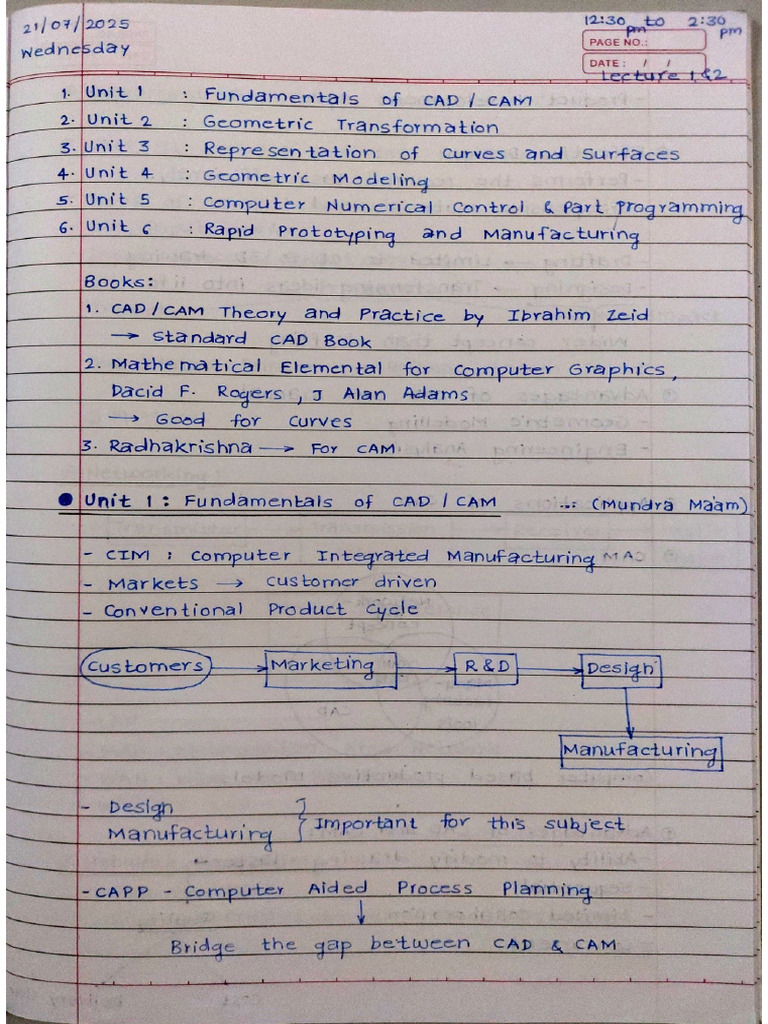 21/07/2025
Wednesday
12:30 pm to 2:30 pm
PAGE NO.:
DATE: / /
Lecture 1 & 2
1. Unit 1 : Fundamentals of CAD / CAM
2. Unit 2 : Geometric Transformation
3. Unit 3 : Representation of Curves and Surfaces
4. Unit 4 : Geometric Modeling
5. Unit 5 : Computer Numerical Control & Part Programming
6. Unit 6 : Rapid Prototyping and Manufacturing
Books:
1. CAD/CAM Theory and Practice by Ibrahim Zeid
→ Standard CAD Book
2. Mathematical Elemental for Computer Graphics,
Dacid F. Rogers, J Alan Adams
→ Good for Curves
3. Radhakrishna → For CAM
● Unit 1 : Fundamentals of CAD / CAM ... (Mundra Ma'am)
- CIM : Computer Integrated Manufacturing
- Markets → customer driven
- Conventional Product Cycle
Customers → Marketing → R&D → Design
Manufacturing
- Design
Manufacturing } Important for this subject
- CAPP - Computer Aided Process Planning
↓
Bridge the gap between CAD & CAM